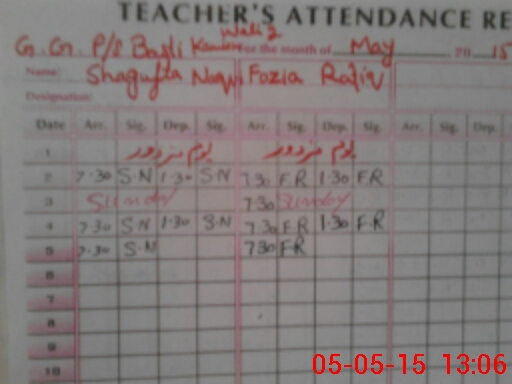 TEACHER'S ATTENDANCE RE
Wali 2
G. G. P/S Basti for the month of May 2015
Name: Shagufta Naqvi Fozia Rafiq
Designation:
Date Arr. Sig. Dep. Sig. Arr. Sig. Dep. Sig. Arr. Sig. Dep.
1 یوم مزدور یوم مزدور
2 7·30 S.N 1·30 S.N 7.30 F.R 1.30 F.R
3 Sunday 7.30 Sunday
4 7·30 S.N 1·30 S.N 7.30 F.R 1.30 F.R
5 7·30 S.N 7.30 F.R
6
7
8
9
10
05-05-15 13:06